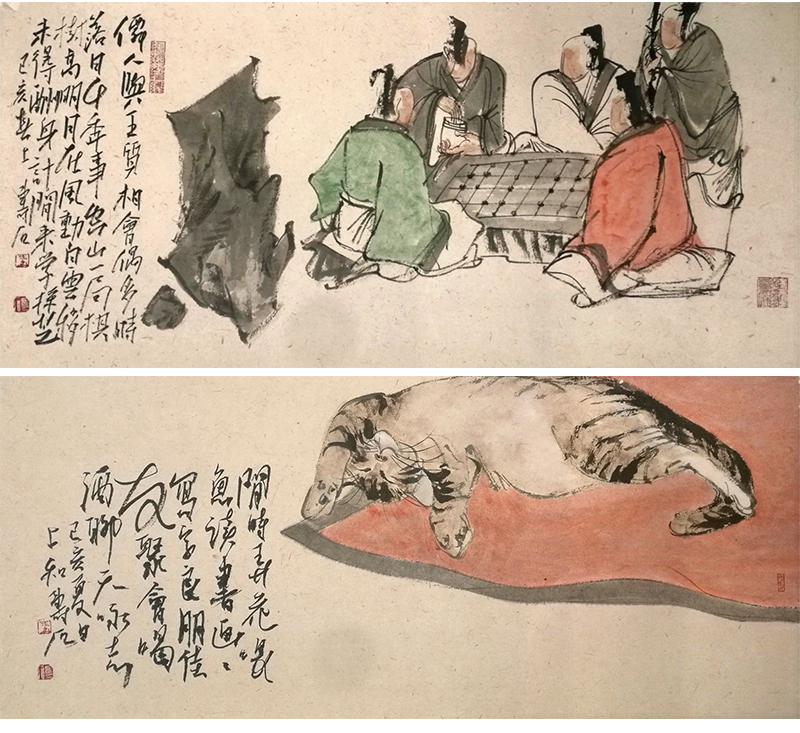 僊人與王質相會偶多時
落日千年事空山一局棋
樹高明月在風動白雲移
未得酬身計閒來學採芝
己亥春上壽石
閒時弄花喂
魚讀書画々
寫字良朋佳
友聚會喝
酒聊天咏志
己亥夏日
上和壽石